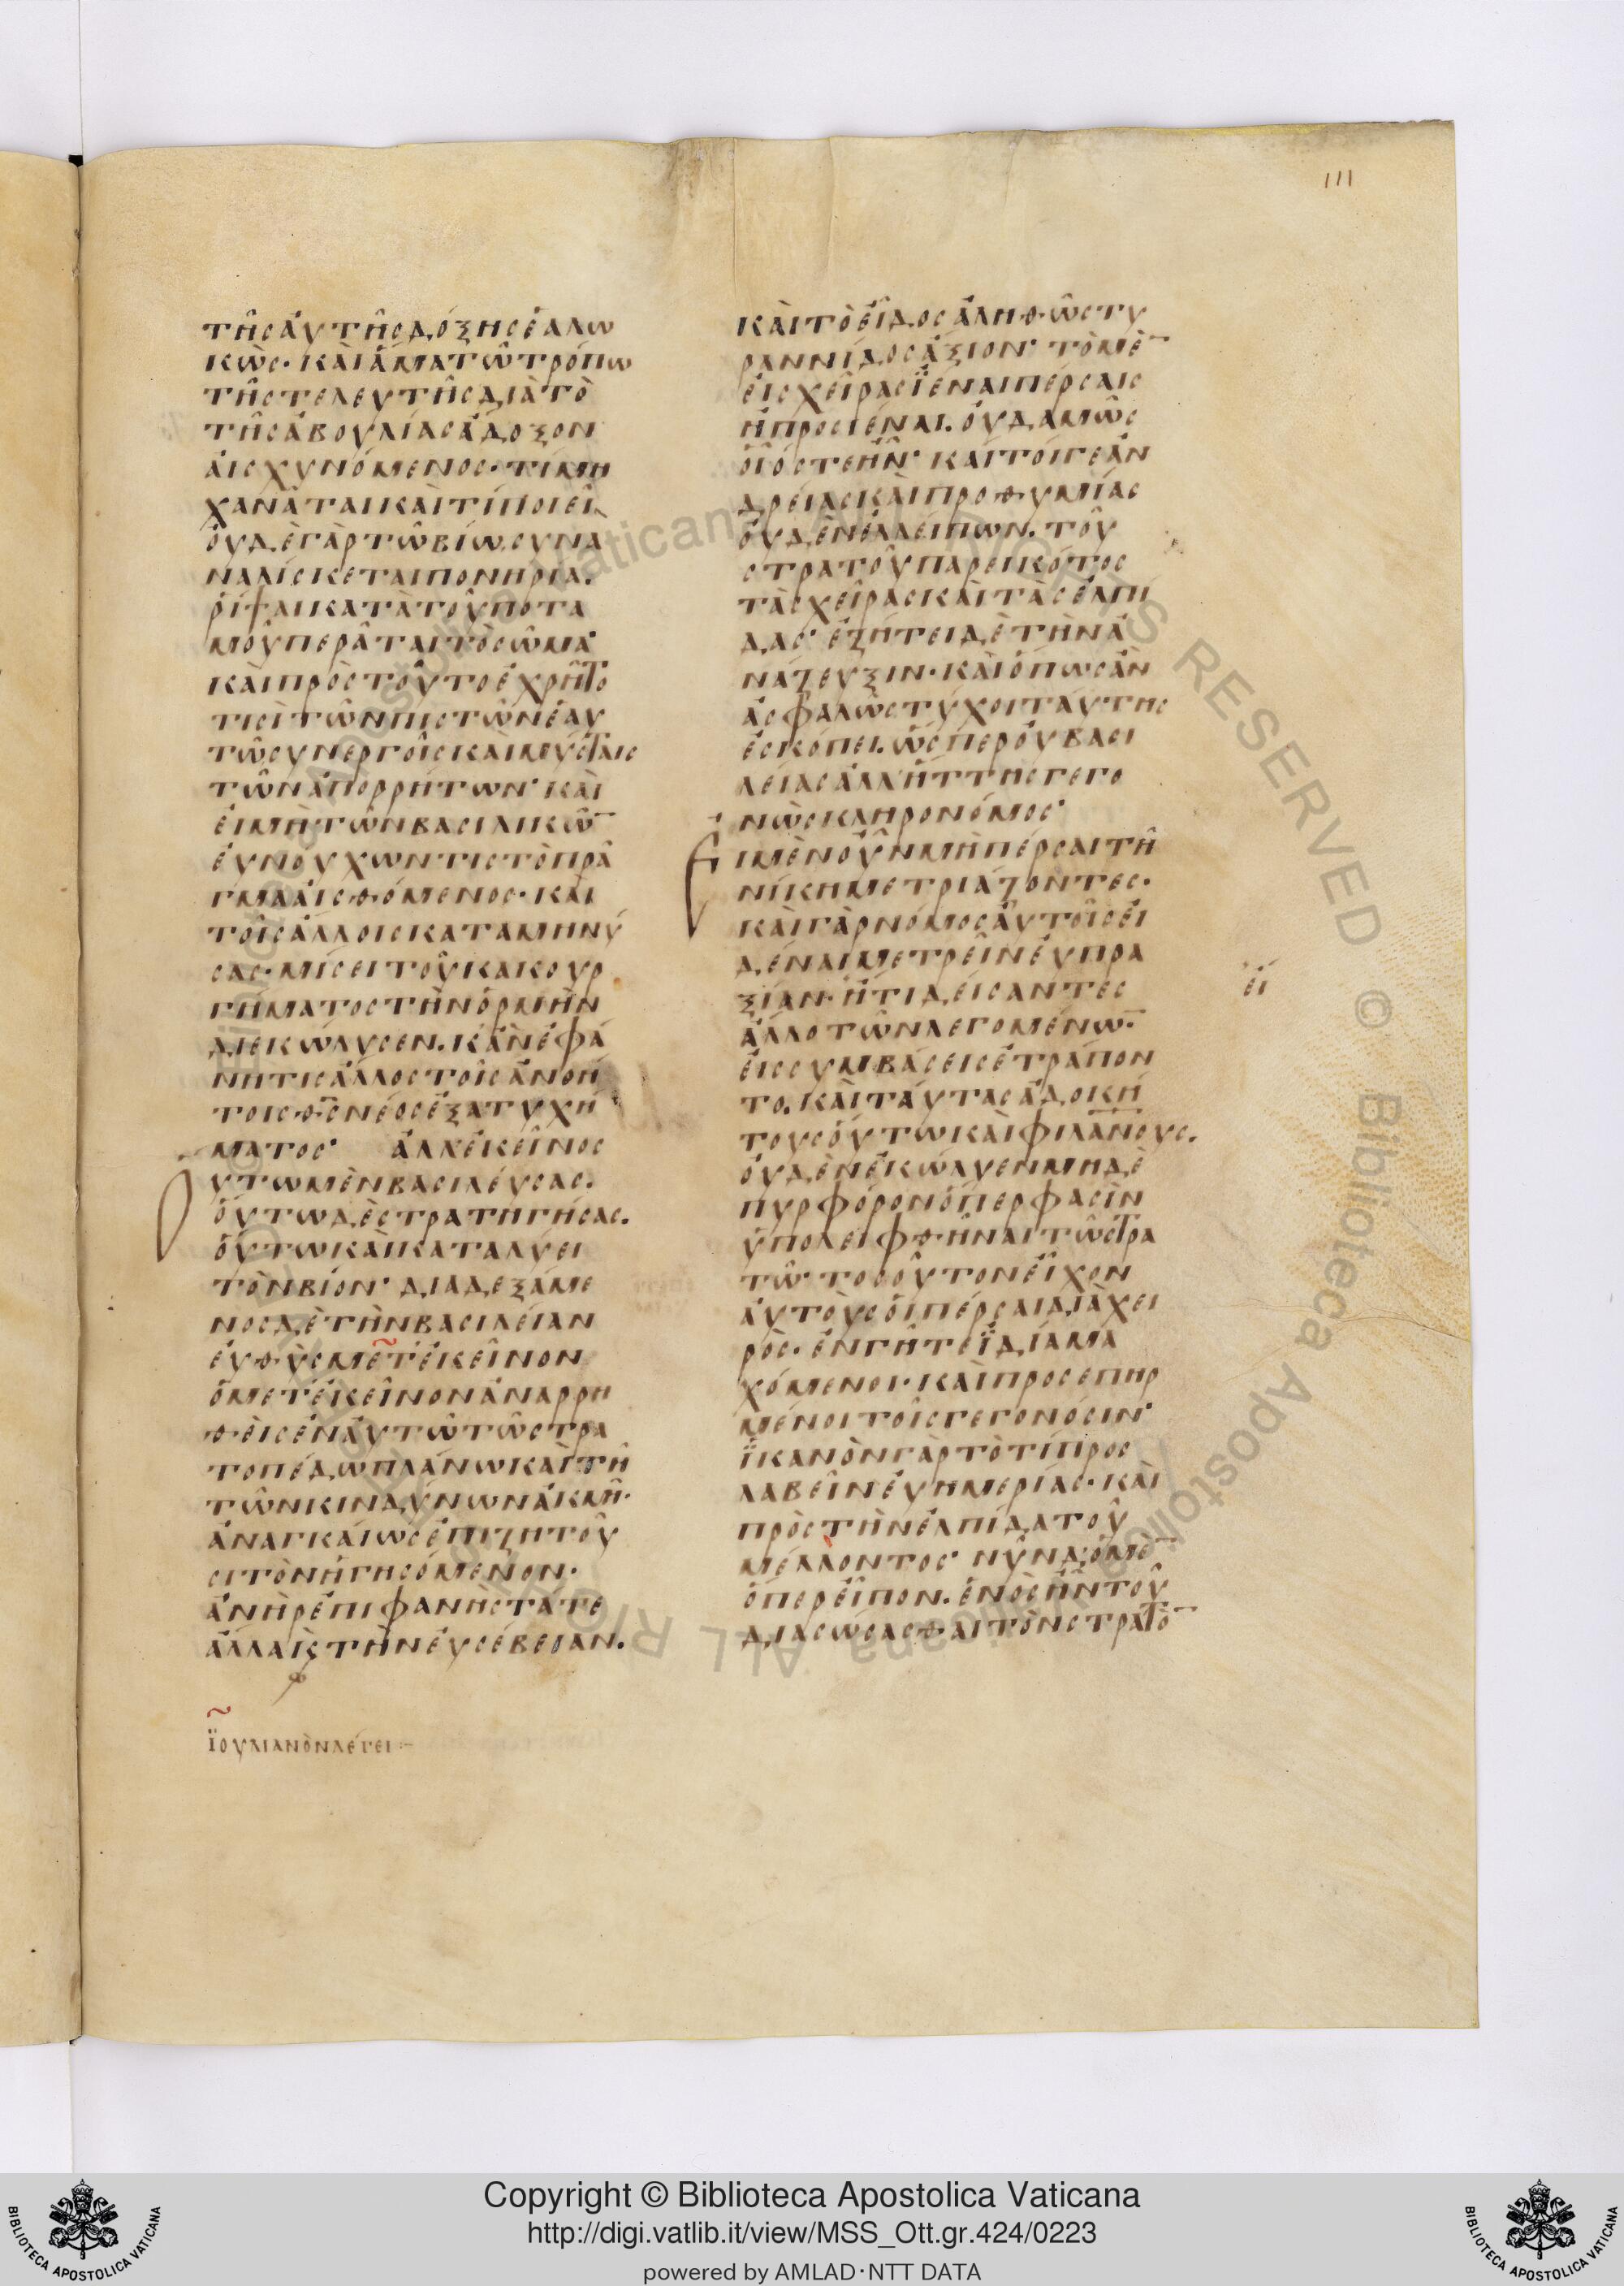 111
τῆσαὐτῆσδόξησἑαλω
κὼσ· καὶἅματῶτρόπω
τῆστελευτῆσδιὰτὸ
τῆσἀβουλίασἄδοξον
αἰσχυνόμενοσ· τίμη
χανᾶταικαὶτίποιεῖ
οὐδὲγὰρτῶβίωσυνα
ναλίσκεταιπονηρία.
ῥίψαικατὰτοῦποτα
μοῦπερᾶταιτὸσῶμα·
καὶπρὸστοῦτοἐχρῆτο
τισὶτῶνπιστῶνἑαυ
τῶσυνεργοῖσκαὶμύσταισ
τῶνἀπορρήτων· καὶ
εἰμὴτῶνβασιλικῶ̄
εὐνούχωντιστὸπρᾶ
γμααἰσθόμενοσ· καὶ
τοῖσἄλλοισκαταμηνύ
σασ· μίσειτοῦκακουρ
γήματοστὴνὁρμὴν
διεκώλυσεν. κἂνἐφά
νητισἄλλοστοῖσἀνοή
τοισθεὸσνέοσἐξατυχή
ματοσ· ἀλλ'ἐκεῖνοσ
Οὕτωμὲνβασιλεύσασ.
οὕτωδὲστρατηγήσασ.
οὕτωκαὶκαταλύει
τὸνβίον· διαδεξάμε
νοσδὲτὴνβασιλείαν
εὐθὺσμετ'ἐκεῖνον
ὁμετ'ἐκεῖνονἀναρρη
θεὶσἐναὐτῶτῶστρα
τοπέδωπλάνωκαὶτῆ
τῶνκινδύνωνἀκμῆ·
ἀναγκαίωσἐπιζητοῦ
σιτὸνἡγησόμενον·
ἀνὴρἐπιφανὴστάτε
ἄλλακὶστὴνεὐσέβειαν.
ϊουλιανὸνλέγει:–
καὶτὸεἶδοσἀληθῶστυ
ραννίδοσἄξιον· τὸμὲ̄
εἰσχεῖρασϊέναιπέρσαισ
ἢπροσιέναι. οὐδαμῶσ
οἷόστεἦν· καίτοίγεἀν
δρείασκαὶπροθυμίασ
οὐδὲνἐλλείπων. τοῦ
στρατοῦπαρεικότοσ
τὰσχεῖρασκαὶτὰσἐλπί
δασ· ἐζήτειδὲτὴνἀ
νάζευξιν· καὶὅπωσἂν
ἀσφαλῶστύχοιταύτησ
ἐσκόπει. ὥσπεροὐβασι
λείασἀλλ'ἥττησγεγο
νὼσκληρονόμοσ·
Εἰμὲνοὖνμὴπέρσαιτῆ
νίκημετριάζοντεσ·
καὶγὰρνόμοσαὐτοῖσεἰ
δέναιμετρεῖνεὐπρα
ξίαν· ἤτιδείσαντεσ
ἄλλοτῶνλεγομένω̄·
εἰσσυμβάσεισἐτράπον
το. καὶταύτασἀδοκή
τουσοὕτωκαὶφιλα̅ν̅ουσ.
οὐδὲνἐκώλυενμηδὲ
πυρφόρονὅπερφασὶν
ὑπολειφθῆναιτῶστρα
τῶ· τοσοῦτονεἶχον
αὐτοὺσοἱπέρσαιδιὰχει
ρόσ· ἐνγῆτεϊδίαμα
χόμενοι· καὶπροσεπηρ
μένοιτοῖσγεγονόσιν·
ϊκανὸνγὰρτὸτίπροσ
λαβεῖνεὐημερίασ· καὶ
πρὸστὴνἐλπίδατοῦ
μέλλοντοσ· νῦνδ'ὁμὲ̄
ὅπερεἶπον. ἑνὸσἦντοῦ
διασώσασθαιτὸνστρατὸ̄
εἰ
Copyright © Biblioteca Apostolica Vaticana
http://digi.vatlib.it/view/MSS_Ott.gr.424/0223
powered by AMLAD·NTT DATA
BIBLIOTECA APOSTOLICA VATICANA
BIBLIOTECA APOSTOLICA VATICANA